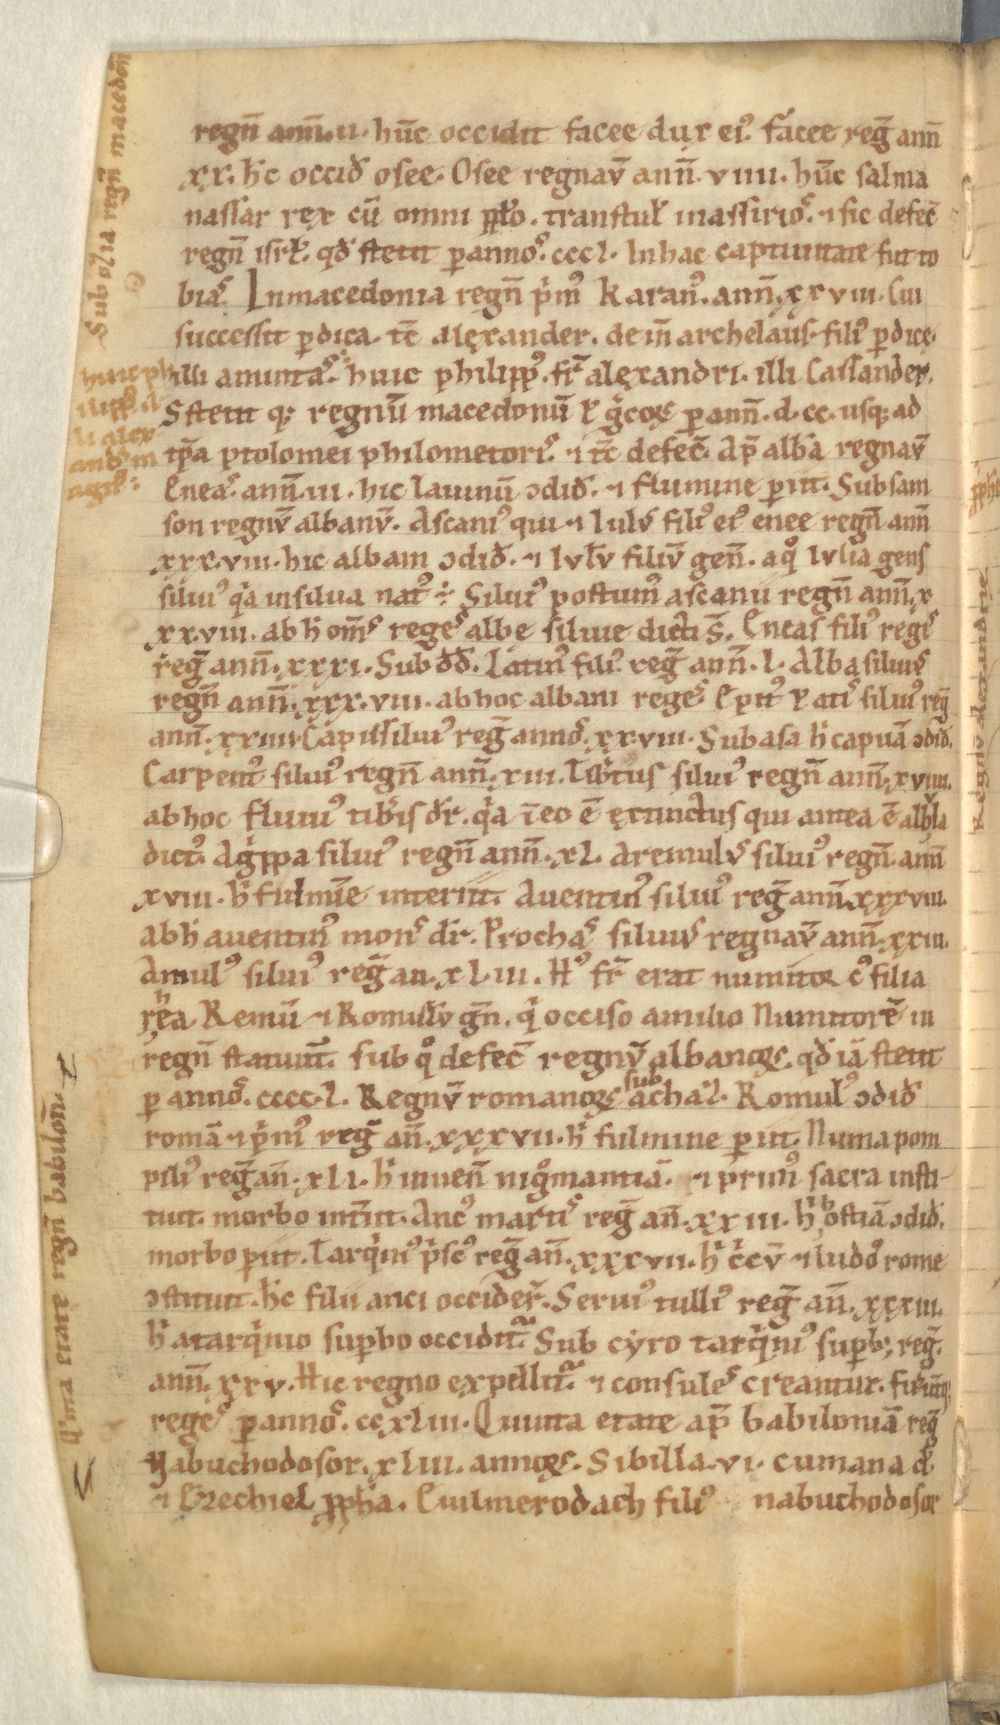 regn̄ ann̄. ii. hūc occidit facee dux ei᷒. facee reḡ ann̄
xx. hc̄ occid̄ osee. Osee regnav̄ ann̄. viiii. hūc salma
nassar rex cū omni pp̄lo. transtul̄ in assirios. ⁊ sic defec̄
regn̄ isrl̄. qd̄ stetit p annos. cccl. In hac captiuitate fuit to
bias. In macedonia regn̄ p̄m᷒ karan᷒. ann̄. xxviii. Cui
successit pdica. tc̄ alexander. dein̄ archelaus. fili᷒ pdice.
illi amintas. huic philipp᷒. fr̄ alexandri. illi Cassander.
Stetit q; regnū macedonū ł g̓coꝝ p ann̄. d. cc. usq; ad
tp̄a ptolomei philometoris. ⁊ tc̄ defec̄. Ap̄ alba regnav̄
Eneas. ann̄. iii. hic lauinū ↄdid̄. ⁊ flumine piit. Sub sam
son regnv̄ albanv̄. Ascani᷒ qui ⁊ iulv᷒ fili᷒ ei᷒ enee regn̄ ann̄
xxx. viii. hic albam ↄdid̄. ⁊ ivlv̄ filiv̄ gen̄. a q̊ ivlia gens
silui᷒ q̓a in silua nat᷒. Silui᷒ postum᷒ ascanii regn̄ ann̄. x
xxviii. ab h̓ om̄s reges albe siluie dicti s̄. Eneas fili᷒ regis
reḡ ann̄. xxxi. Sub dd̄. Latin᷒ fili᷒ reḡ ann̄. l. Alba silui᷒
regn̄ ann̄. xxx. viii. ab hoc albani reges Epit᷒ ł atis silui᷒ reḡ
ann̄. xxiiii. Capis silui᷒ reḡ annos. xxviii. Sub asa h̓ capuā ↄdid̄.
Carpent᷒ silui᷒ regn̄ ann̄. xiii. Tib̓inus silui᷒ regn̄ ann̄. xviiii.
ab hoc fluui᷒ tib̓is dr̄. q̓a ī eo ē extinctus qui antea ē albula
dict᷒. Ag̓ppa silui᷒ regn̄ ann̄. xl. Aremulv᷒ silui᷒ regn̄. ann̄
xviii. h̓ fulmīe interiit. Aventin᷒ silui᷒ reḡ ann̄. xxxviii.
ab h̓ aventin᷒ mons dr̄. Prochas silui᷒ regnav̄ ann̄. xxiii.
Amul᷒ silui᷒ reḡ an. xliii. H᷒ fr̄ erat numitor c᷒ filia
rhea Remū ⁊ Romulv̄ gn̄. q̓ occiso amilio Numitorē in
regn̄ statuunt̄. sub q̊ defec̄ regnv̄ albanoꝝ. qd̄ iā stetit
p annos. cccc. l. Regnv̄ romanoꝝ sub achaz. Romul᷒ ↄdid̄
romā ⁊ p̓m᷒ reḡ an̄. xxxvii. h̓ fulmine piit. Numa pom
pili᷒ reḡ an̄. xli. h̓ inuen̄ nig̊mantiā. ⁊ prim᷒ sacra insti-
tuit. morbo int̓iit. Anc᷒ marti᷒ reḡ an̄. xxiii. h̓ hostiā ↄdid̄.
morbo piit. Tarq̓ni᷒ p̓sc᷒ reḡ an̄. xxxvii. h̓ c̓cv̄ ⁊ ludos rome
ↄstituit. hc̄ filii anci occider̄. Servi᷒ tulli᷒ reḡ an̄. xxxiii.
h̓ a tarq̓nio supbo occidit᷑. Sub cyro tarq̓ni᷒ supb᷒, reḡ.
ann̄. xxv. Hic regno expellit᷑. ⁊ consules creantur.
reges p annos. ccxliii. Quinta etate ap̄ babiloniā reḡ
Nabuchodosor. xliii. annoꝝ. Sibilla. vi. cumana
⁊ Ezechiel pph̄a. Euilmerodach fili᷒ nabuchodosor
Sub ozia regn̄ macedon̄
huic ph
ilipp᷒ il
li alex
and̓ m
agn᷒:
Quinta etate regn̄ babilon̄